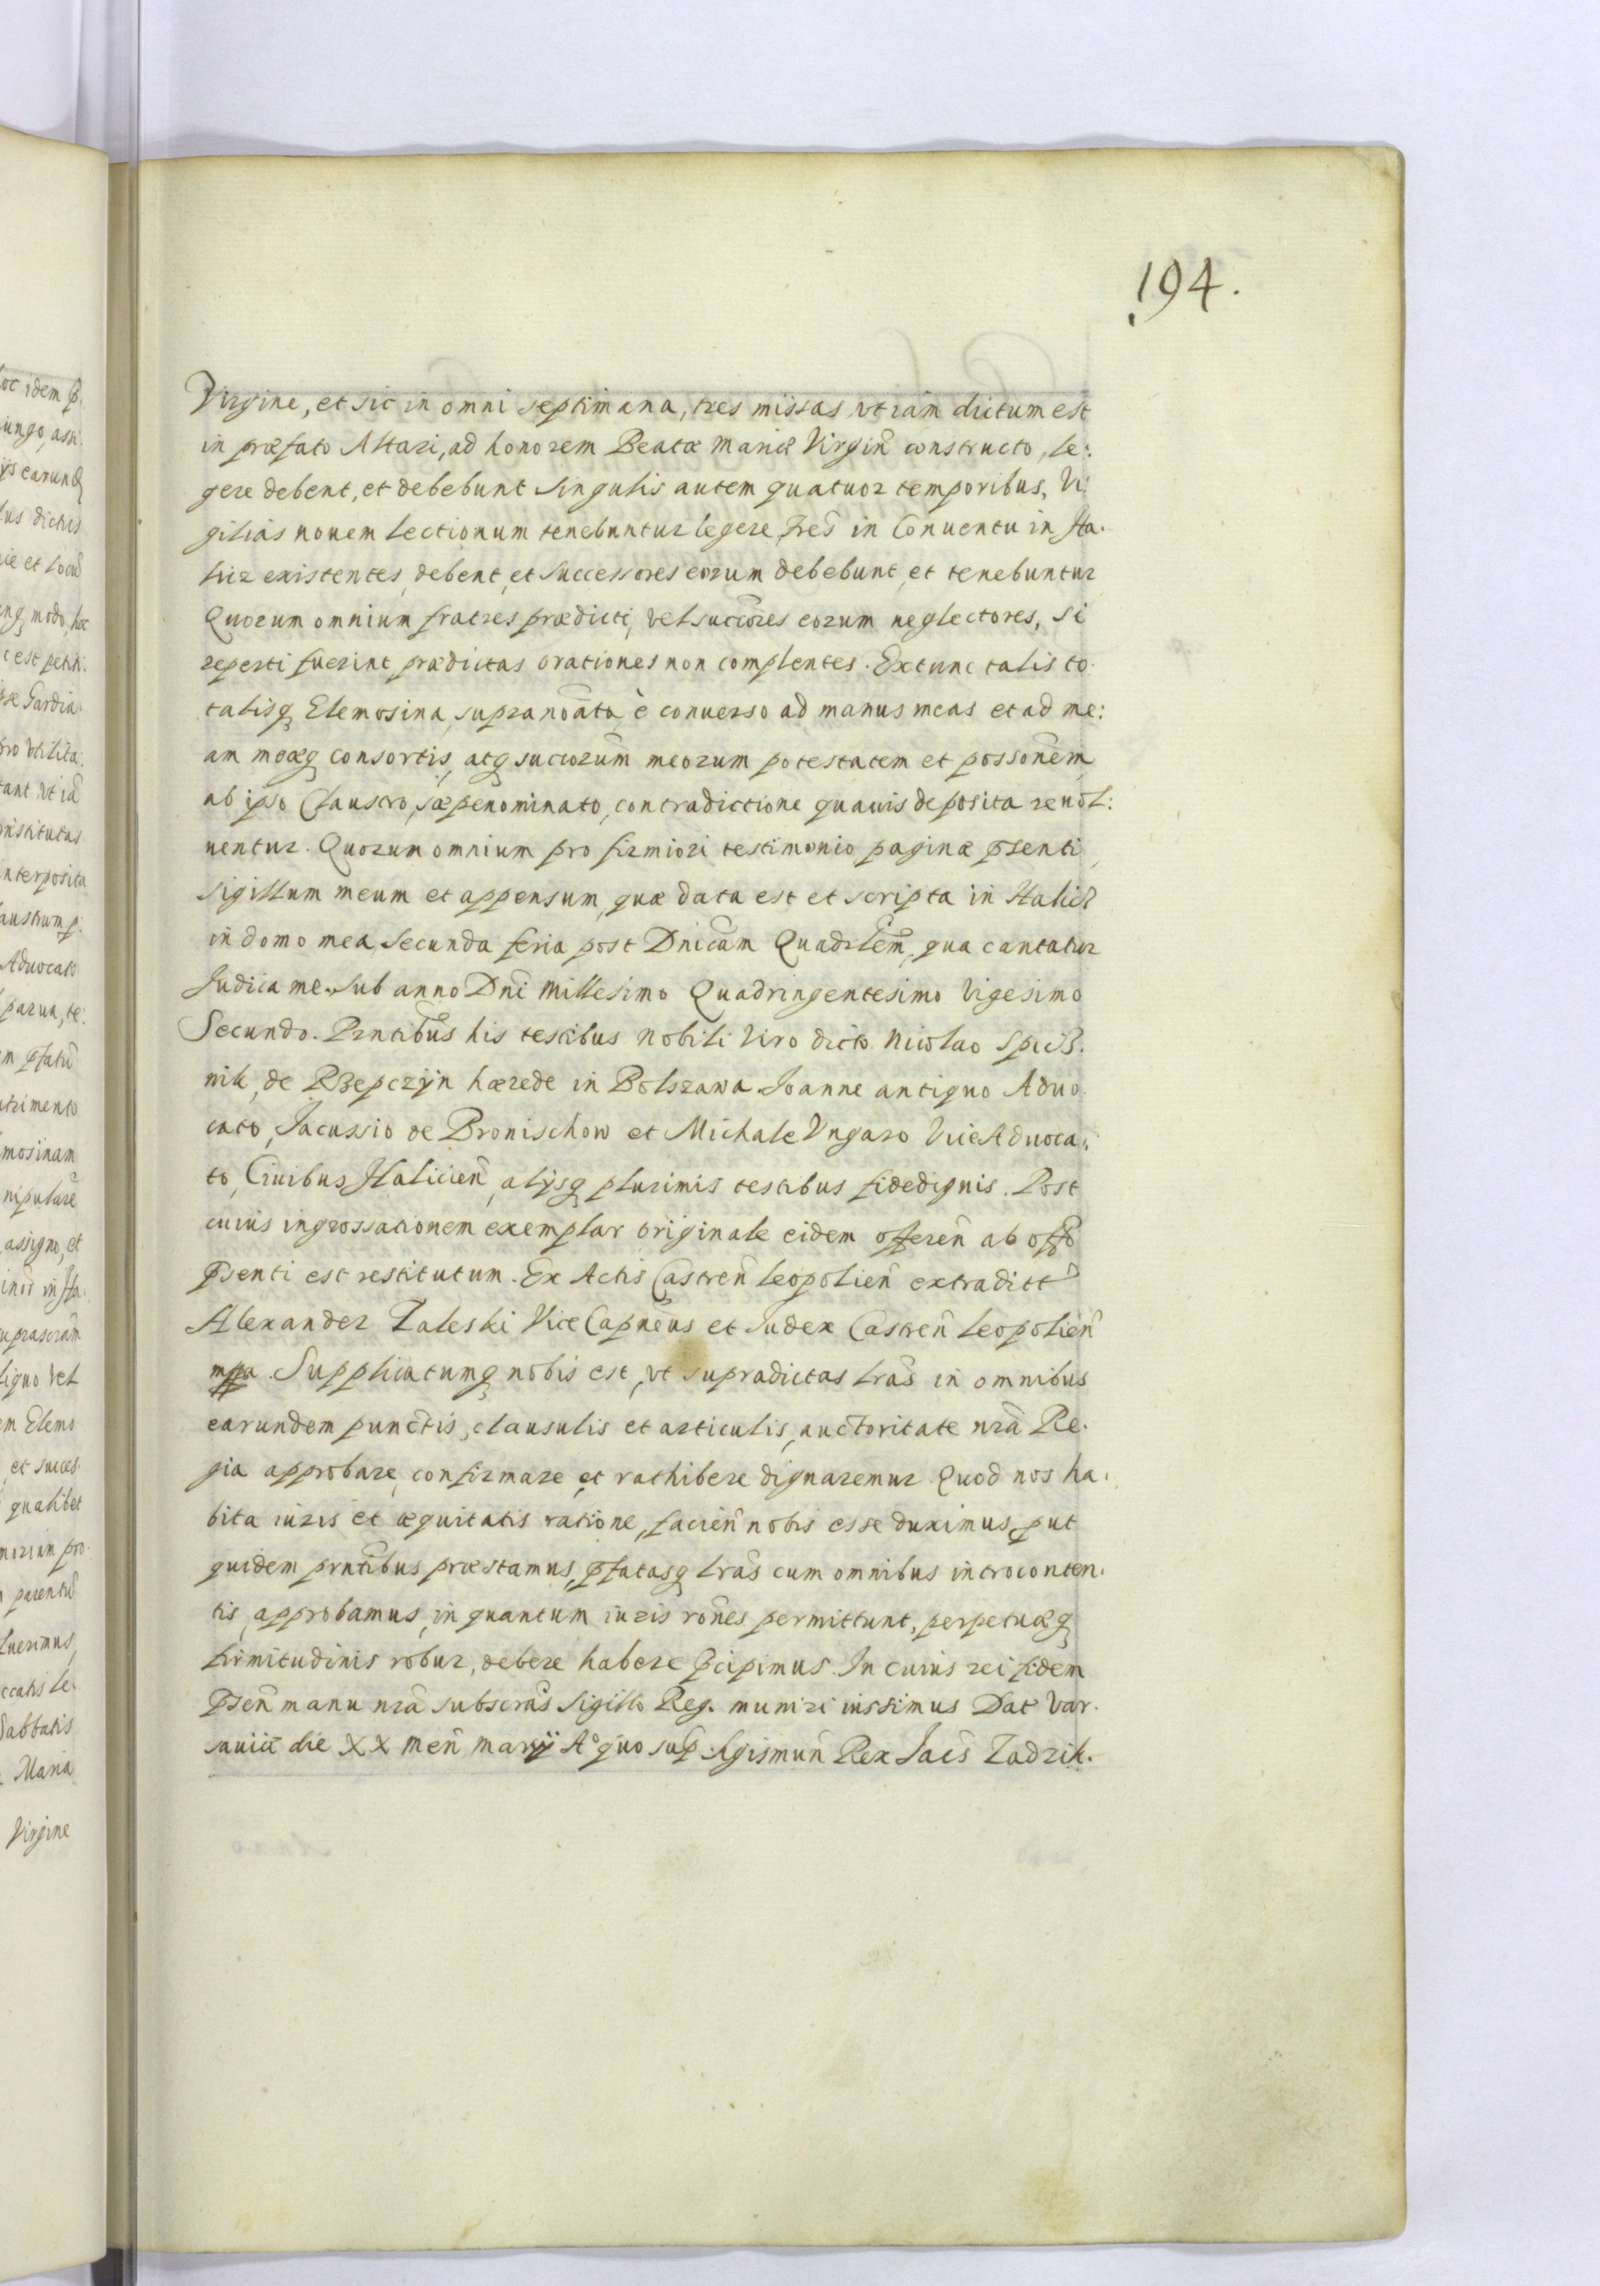 194.
Virgine, et sic in omni septimana, tres missas ut iam dictum est
in præfato Altari, ad honorem Beatæ Mariæ Virgin̄ constructo, le:
gere debent, et debebunt singulis autem quatuor temporibus, Vi:
gilias novem lectionum tenebuntur legere, fres̄ in Conventu in Ha.
licz existentes, debent, et successores eorum debebunt, et tenebuntur
Quorum omnium fratres prædicti, vel succōres eorum neglectores, si
reperti fuerint prædictas orationes non complentes. Extunc talis to.
talisq Elemosina, supranoāta è converso ad manus meas et ad me:
am meæq consortis, atq succorūm meorum potestatem et possonēm
ab ipso Claustro, sæpenominato, contradictione quavis deposita revol:
uentur. Quorum omnium pro firmiori testimonio paginæ p̄senti
sigillum meum et appensum, quæ data est et scripta in Halicz
in domo mea secunda feria post Dnicām Quadrlēm, qua cantatur
Judica me. Sub anno Dn̄i Millesimo Quadringentesimo Vigesimo
Secundo. Prntibūs his testibus Nobili Viro dicto Nicolao Spicz.
nik, de Rzepczyn hærede in Bolszawa Joanne antiquo Advo.
cato, Jacussio de Bronischow et Michale Vngaro ViceAdvoca:
to, Civibus Halicien̄, alijsq plurimis testibus fidedignis. Post
cuius ingrossationem exemplar originale eidem offeren̄ ab offō
p̄senti est restitutum. Ex Actis Castren̄ Leopolien̄ extraditt
Alexander Zaleski ViceCapnēus et Judex Castren̄ Leopolien̄
mppa. Supplicatumq nobis est, ut supradictas lrās in omnibus
earundem punctis, clausulis et articulis, auctoritate nrā Re.
gia approbare, confirmare, et rathibere dignaremur Quod nos ha.
bita iuris et æquitatis ratione, facien̄ nobis esse duximus, put
quidem prntībus præstamus, p̄fatasq lrās cum omnibus introconten.
tis, approbamus, in quantum iuris rōnes permittunt, perpetuæq
firmitudinis robur, debere habere p̄cipimus. In cuius rei fidem
p̄sen̄ manu nrā subscrās Sigillo Reg. muniri iussimus Dat Var.
saviæ die XX Men̄ Marÿ A° quo sup̄. Sigismun̄ Rex Jacs̄ Zadzik.